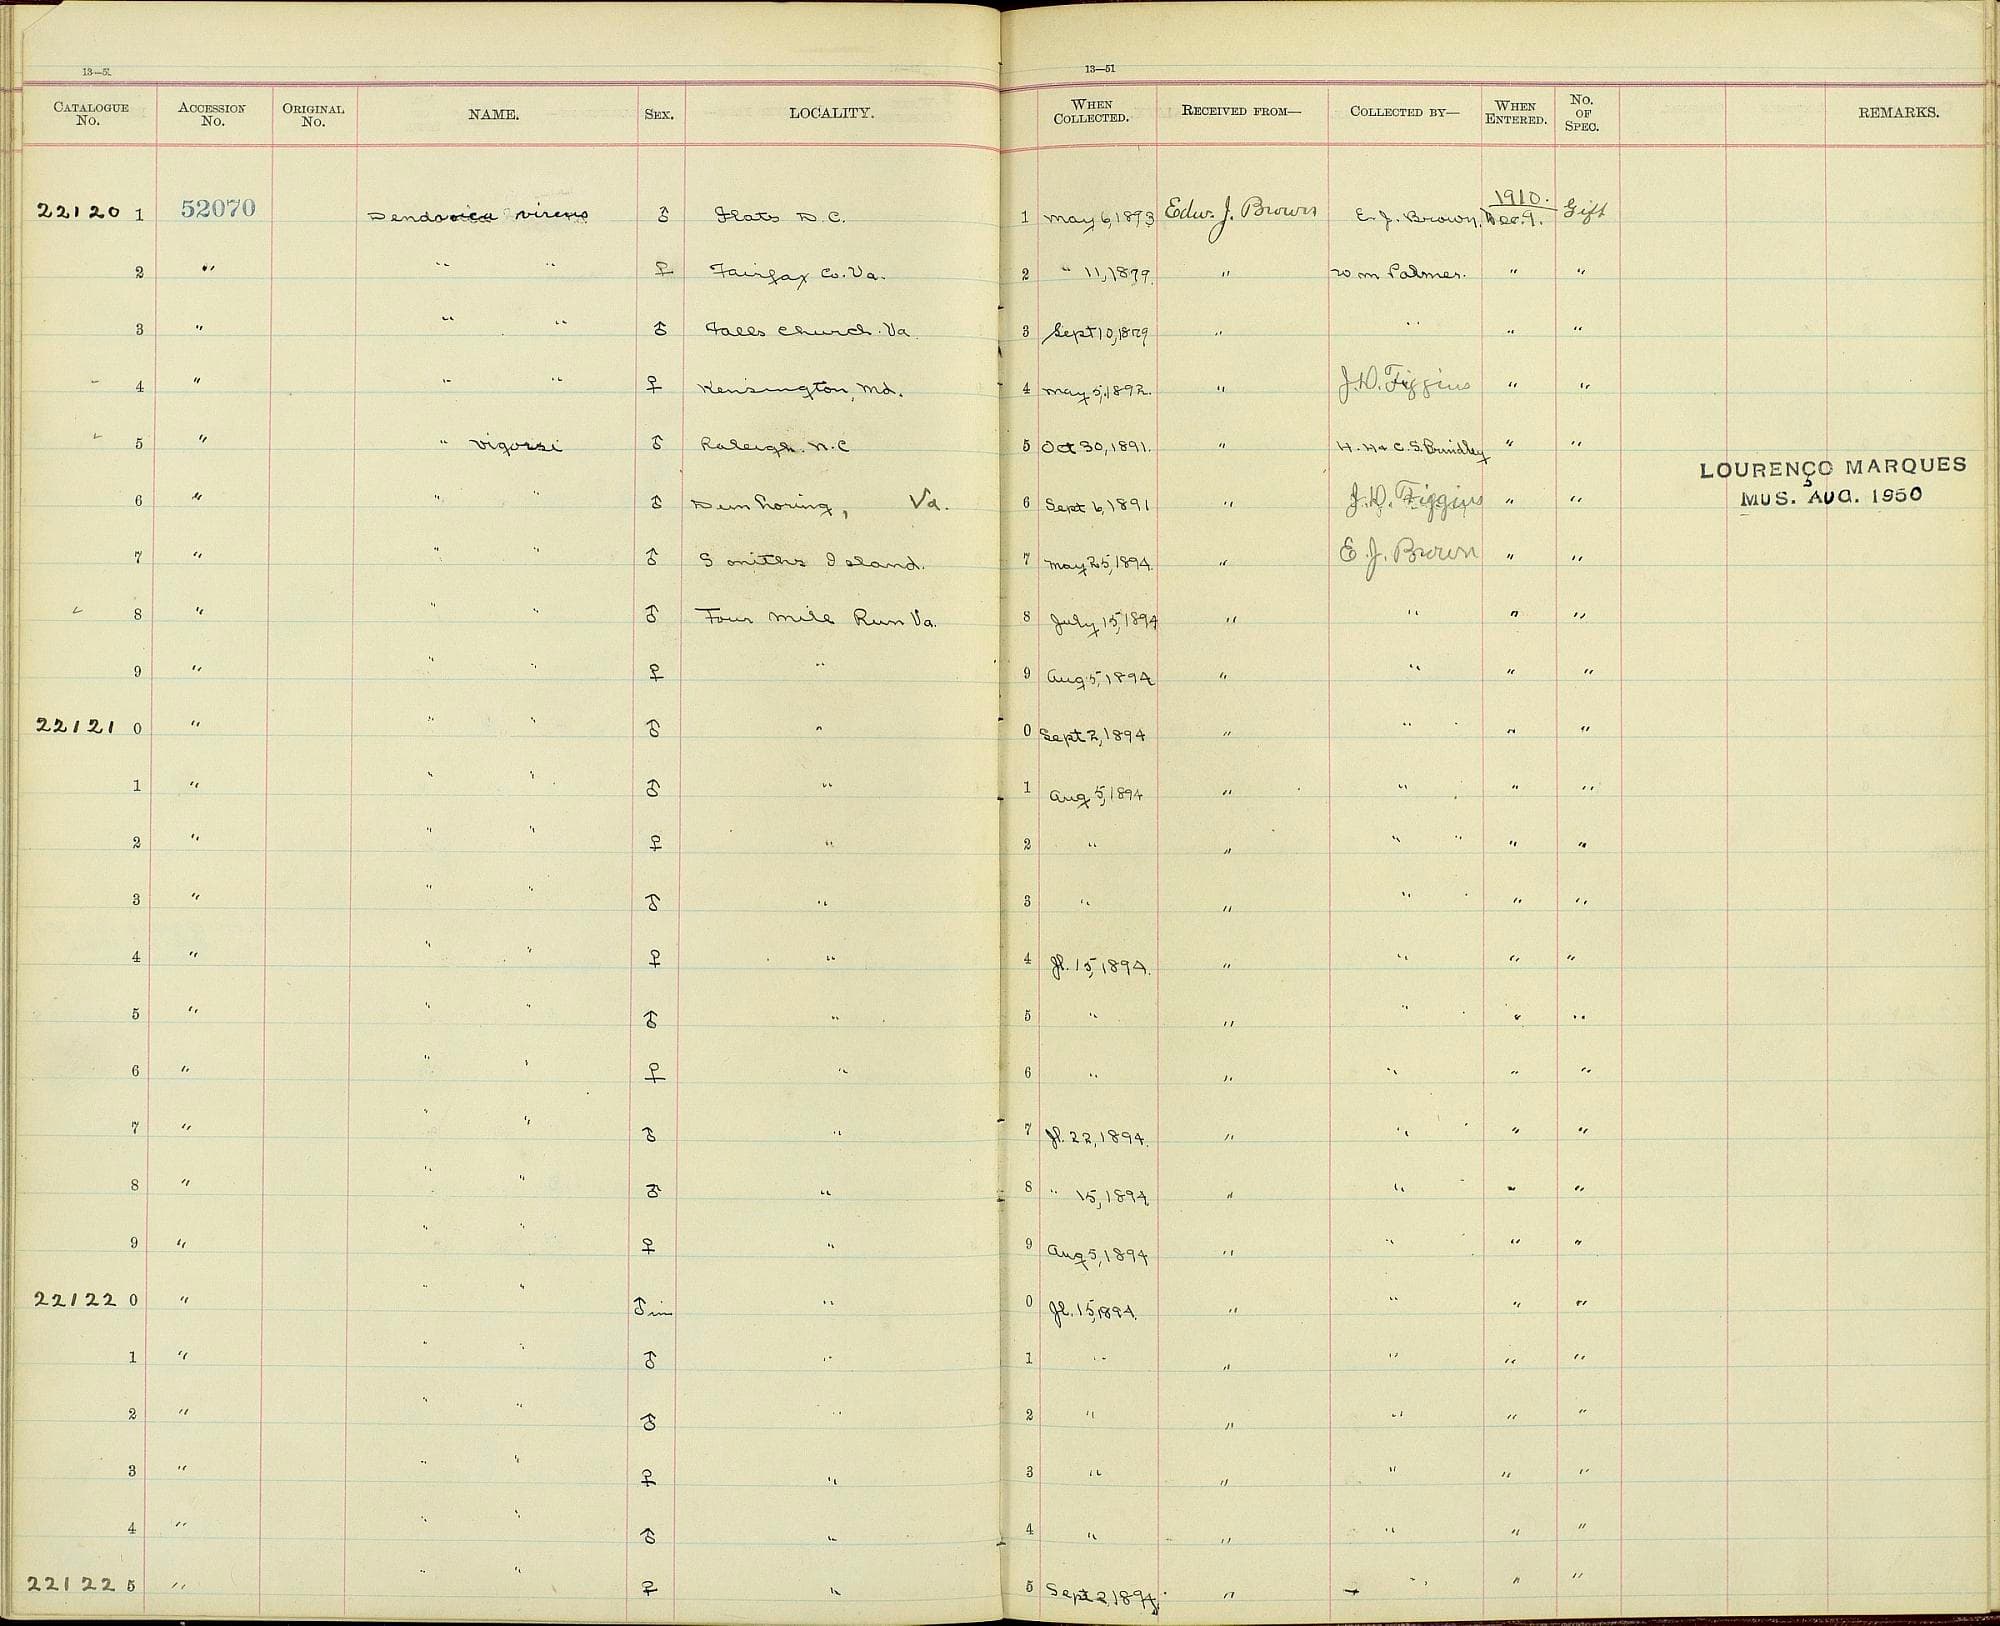 13—51
CATALOGUE No. ACCESSION No. ORIGINAL No. NAME. SEX. LOCALITY. WHEN COLLECTED. RECEIVED FROM— COLLECTED BY— WHEN ENTERED. No. OF SPEC. REMARKS.
13—51
1910.
22120 1 52070 Dendroica virens ♂ Flats D.C. 1 May 6, 1893 Edw. J. Brown E. J. Brown. Dec. 9. Gift
2 " " " ♀ Fairfax Co. Va. 2 " 11, 1879. " Wm Palmer. " "
3 " " " ♂ Falls Church. Va. 3 Sept 10, 1879 " " " "
4 " " " ♀ Kensington, Md. 4 May 5, 1892. " J.D. Figgins " "
5 " " vigorsi ♂ Raleigh. N.C 5 Oct 30, 1891. " H. H & C. S. Brimley " "
LOURENÇO MARQUES
6 " " " ♂ Dunn Loring, Va. 6 Sept 6, 1891 " J.D. Figgins " " MUS. AUG. 1950
7 " " " ♂ Smiths Island. 7 May 25, 1894. " E. J. Brown " "
8 " " " ♂ Four Mile Run Va. 8 July 15, 1894 " " " "
9 " " " ♀ " 9 Aug 5, 1894 " " " "
22121 0 " " " ♂ " 0 Sept 2, 1894 " " " "
1 " " " ♂ " 1 Aug 5, 1894 " " " "
2 " " " ♀ " 2 " " " " " "
3 " " " ♂ " 3 " " " " "
4 " " " ♀ " 4 Jl. 15, 1894. " " " "
5 " " " ♂ " 5 " " " " "
6 " " " ♀ " 6 " " " " "
7 " " " ♂ " 7 Jl. 22, 1894. " " " "
8 " " " ♂ " 8 " 15, 1894 " " " "
9 " " " ♀ " 9 Aug 5, 1894 " " " "
22122 0 " " " ♂ im " 0 Jl. 15, 1894. " " " "
1 " " " ♂ " 1 " " " " "
2 " " " ♂ " 2 " " " " "
3 " " " ♀ " 3 " " " " "
4 " " " ♂ " 4 " " " " "
22122 5 " " " ♀ " 5 Sept 2, 1894. " " " "